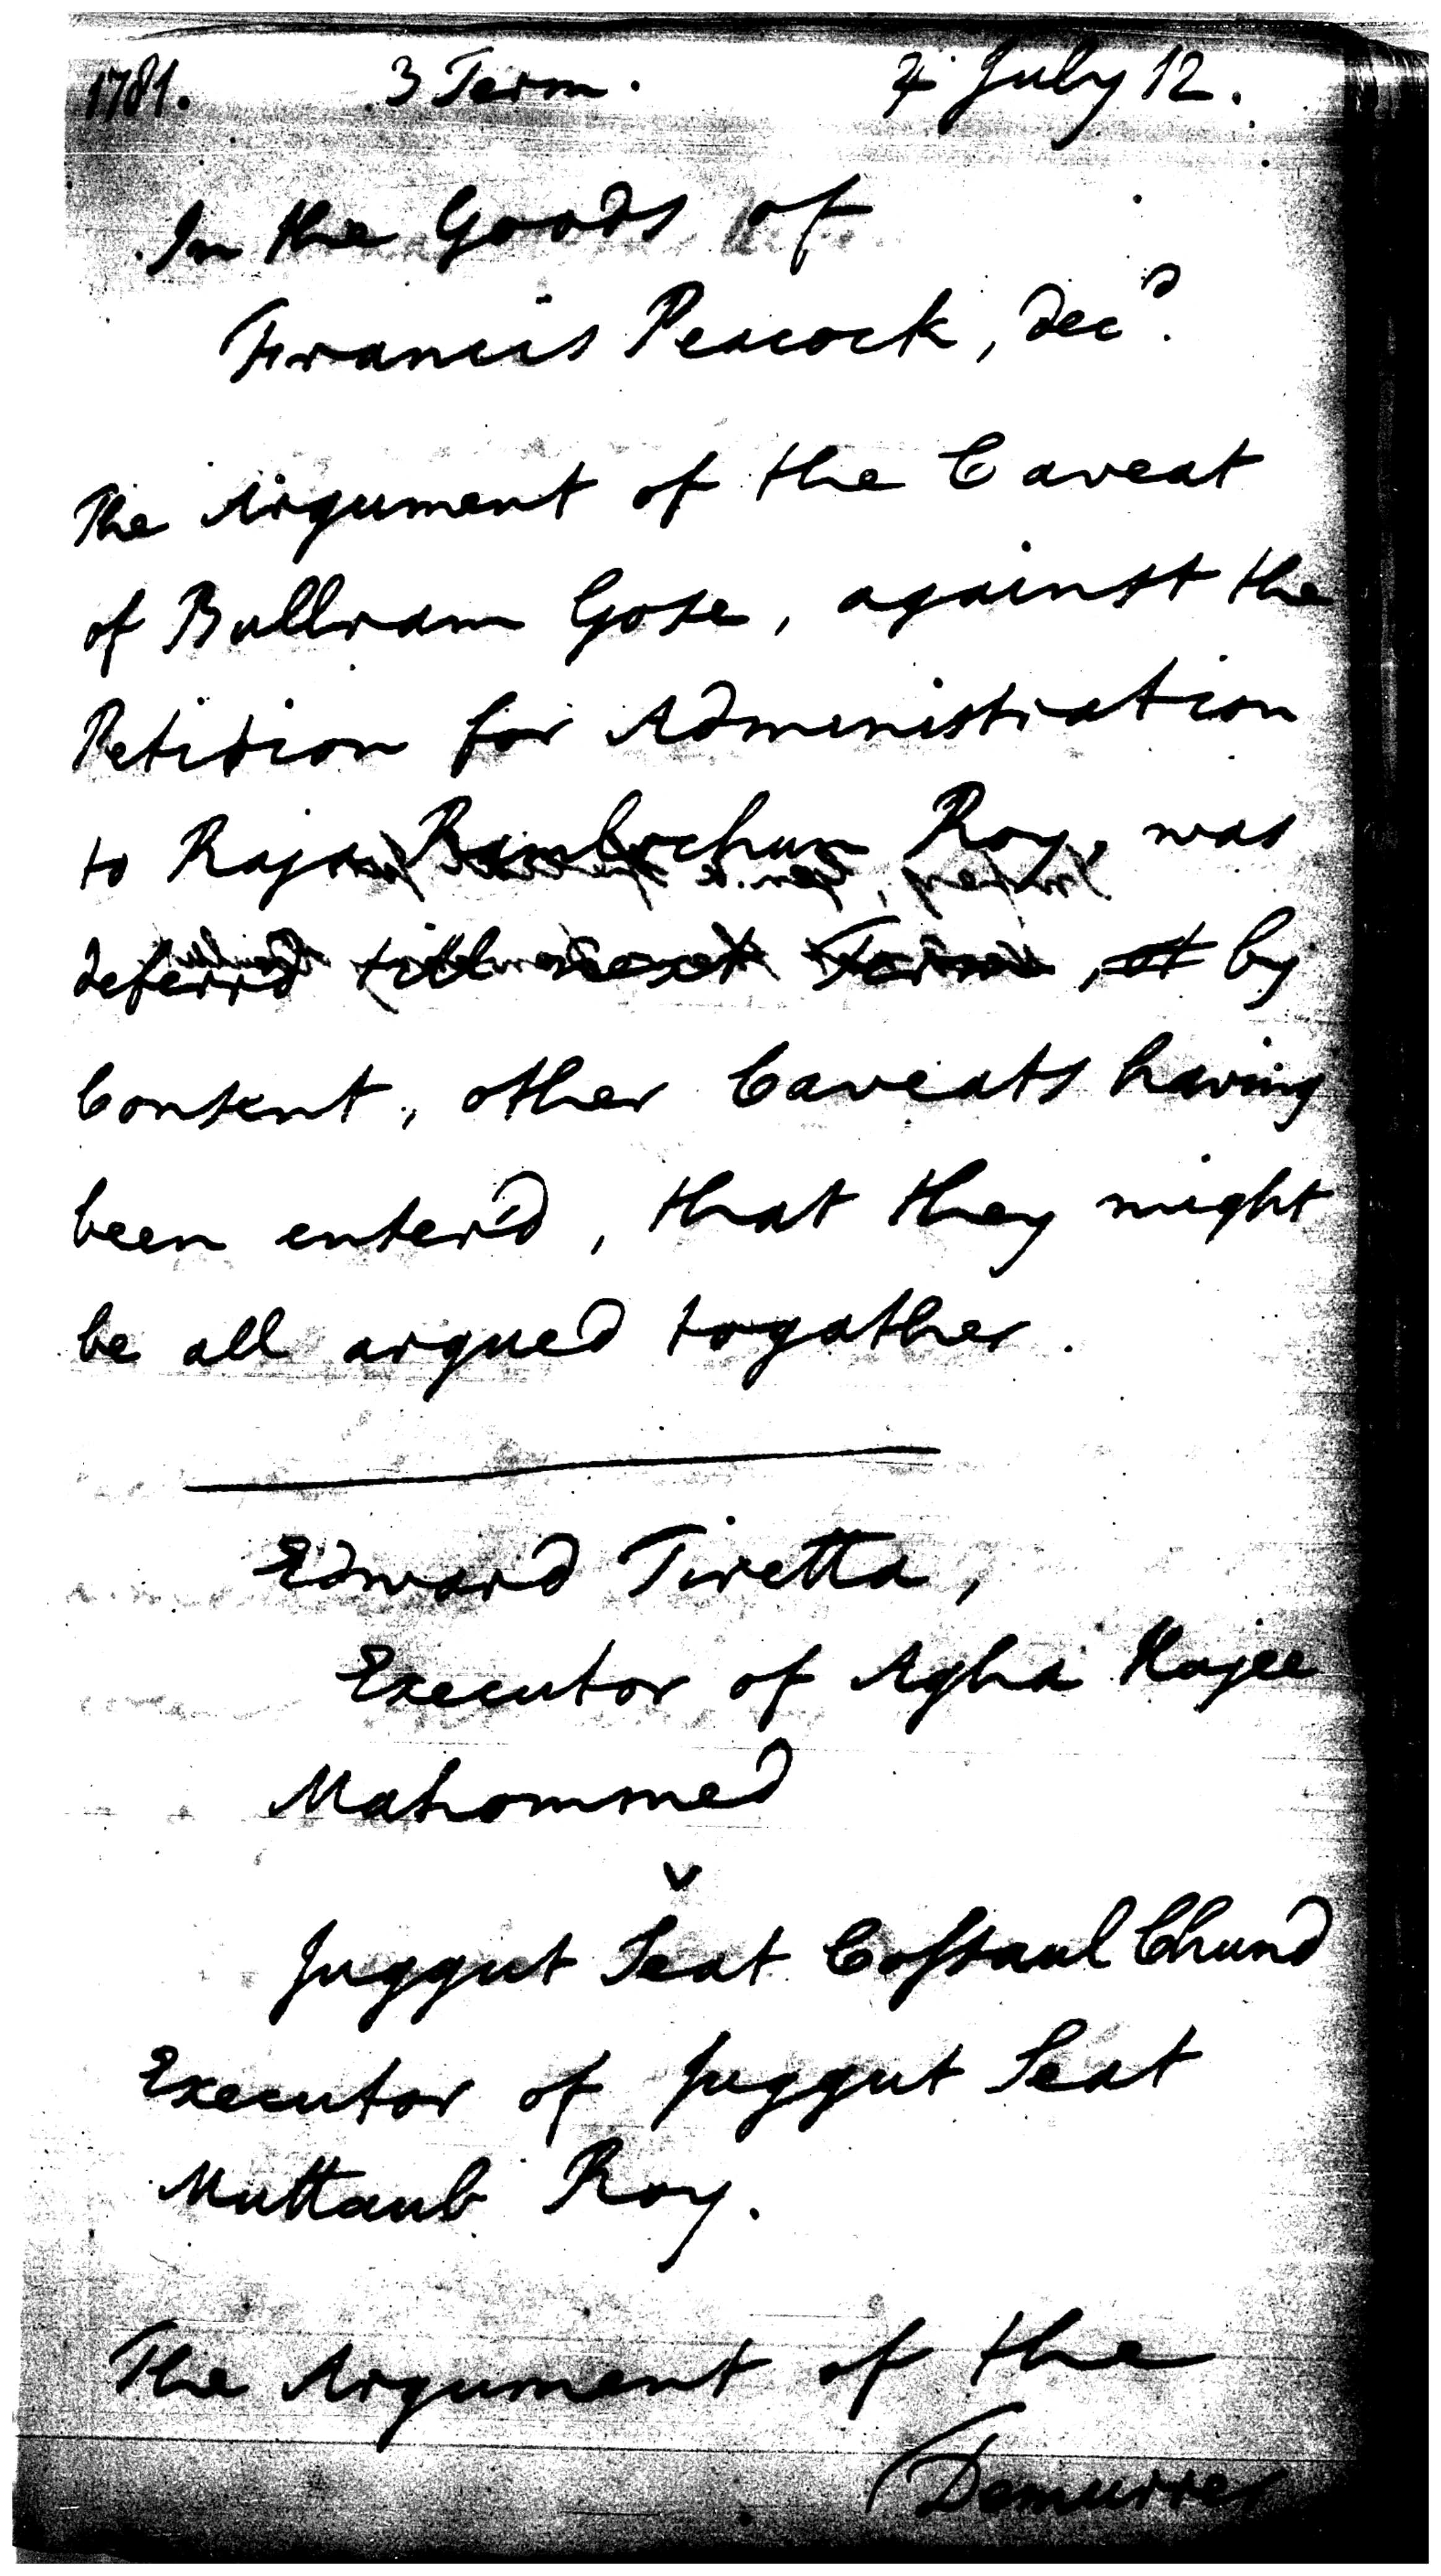 1781. 3 Term. 4 July 12.
In the Goods of
Francis Peacock, decd.
The Argument of the Caveat
of Bullram Gose, against the
Petition for Administration
to Raja Ramlochun Roy, was
deferrd till next Term, at by
Consent, other Caveats having
been enter'd, that they might
be all argued togather.
Edward Tiretta,
Executor of Agha Hajee
Mahommed
v
Juggut Seat Cossaul Chund
Executor of Juggut Seat
Muttaub Roy.
The Argument of the
Demurrer